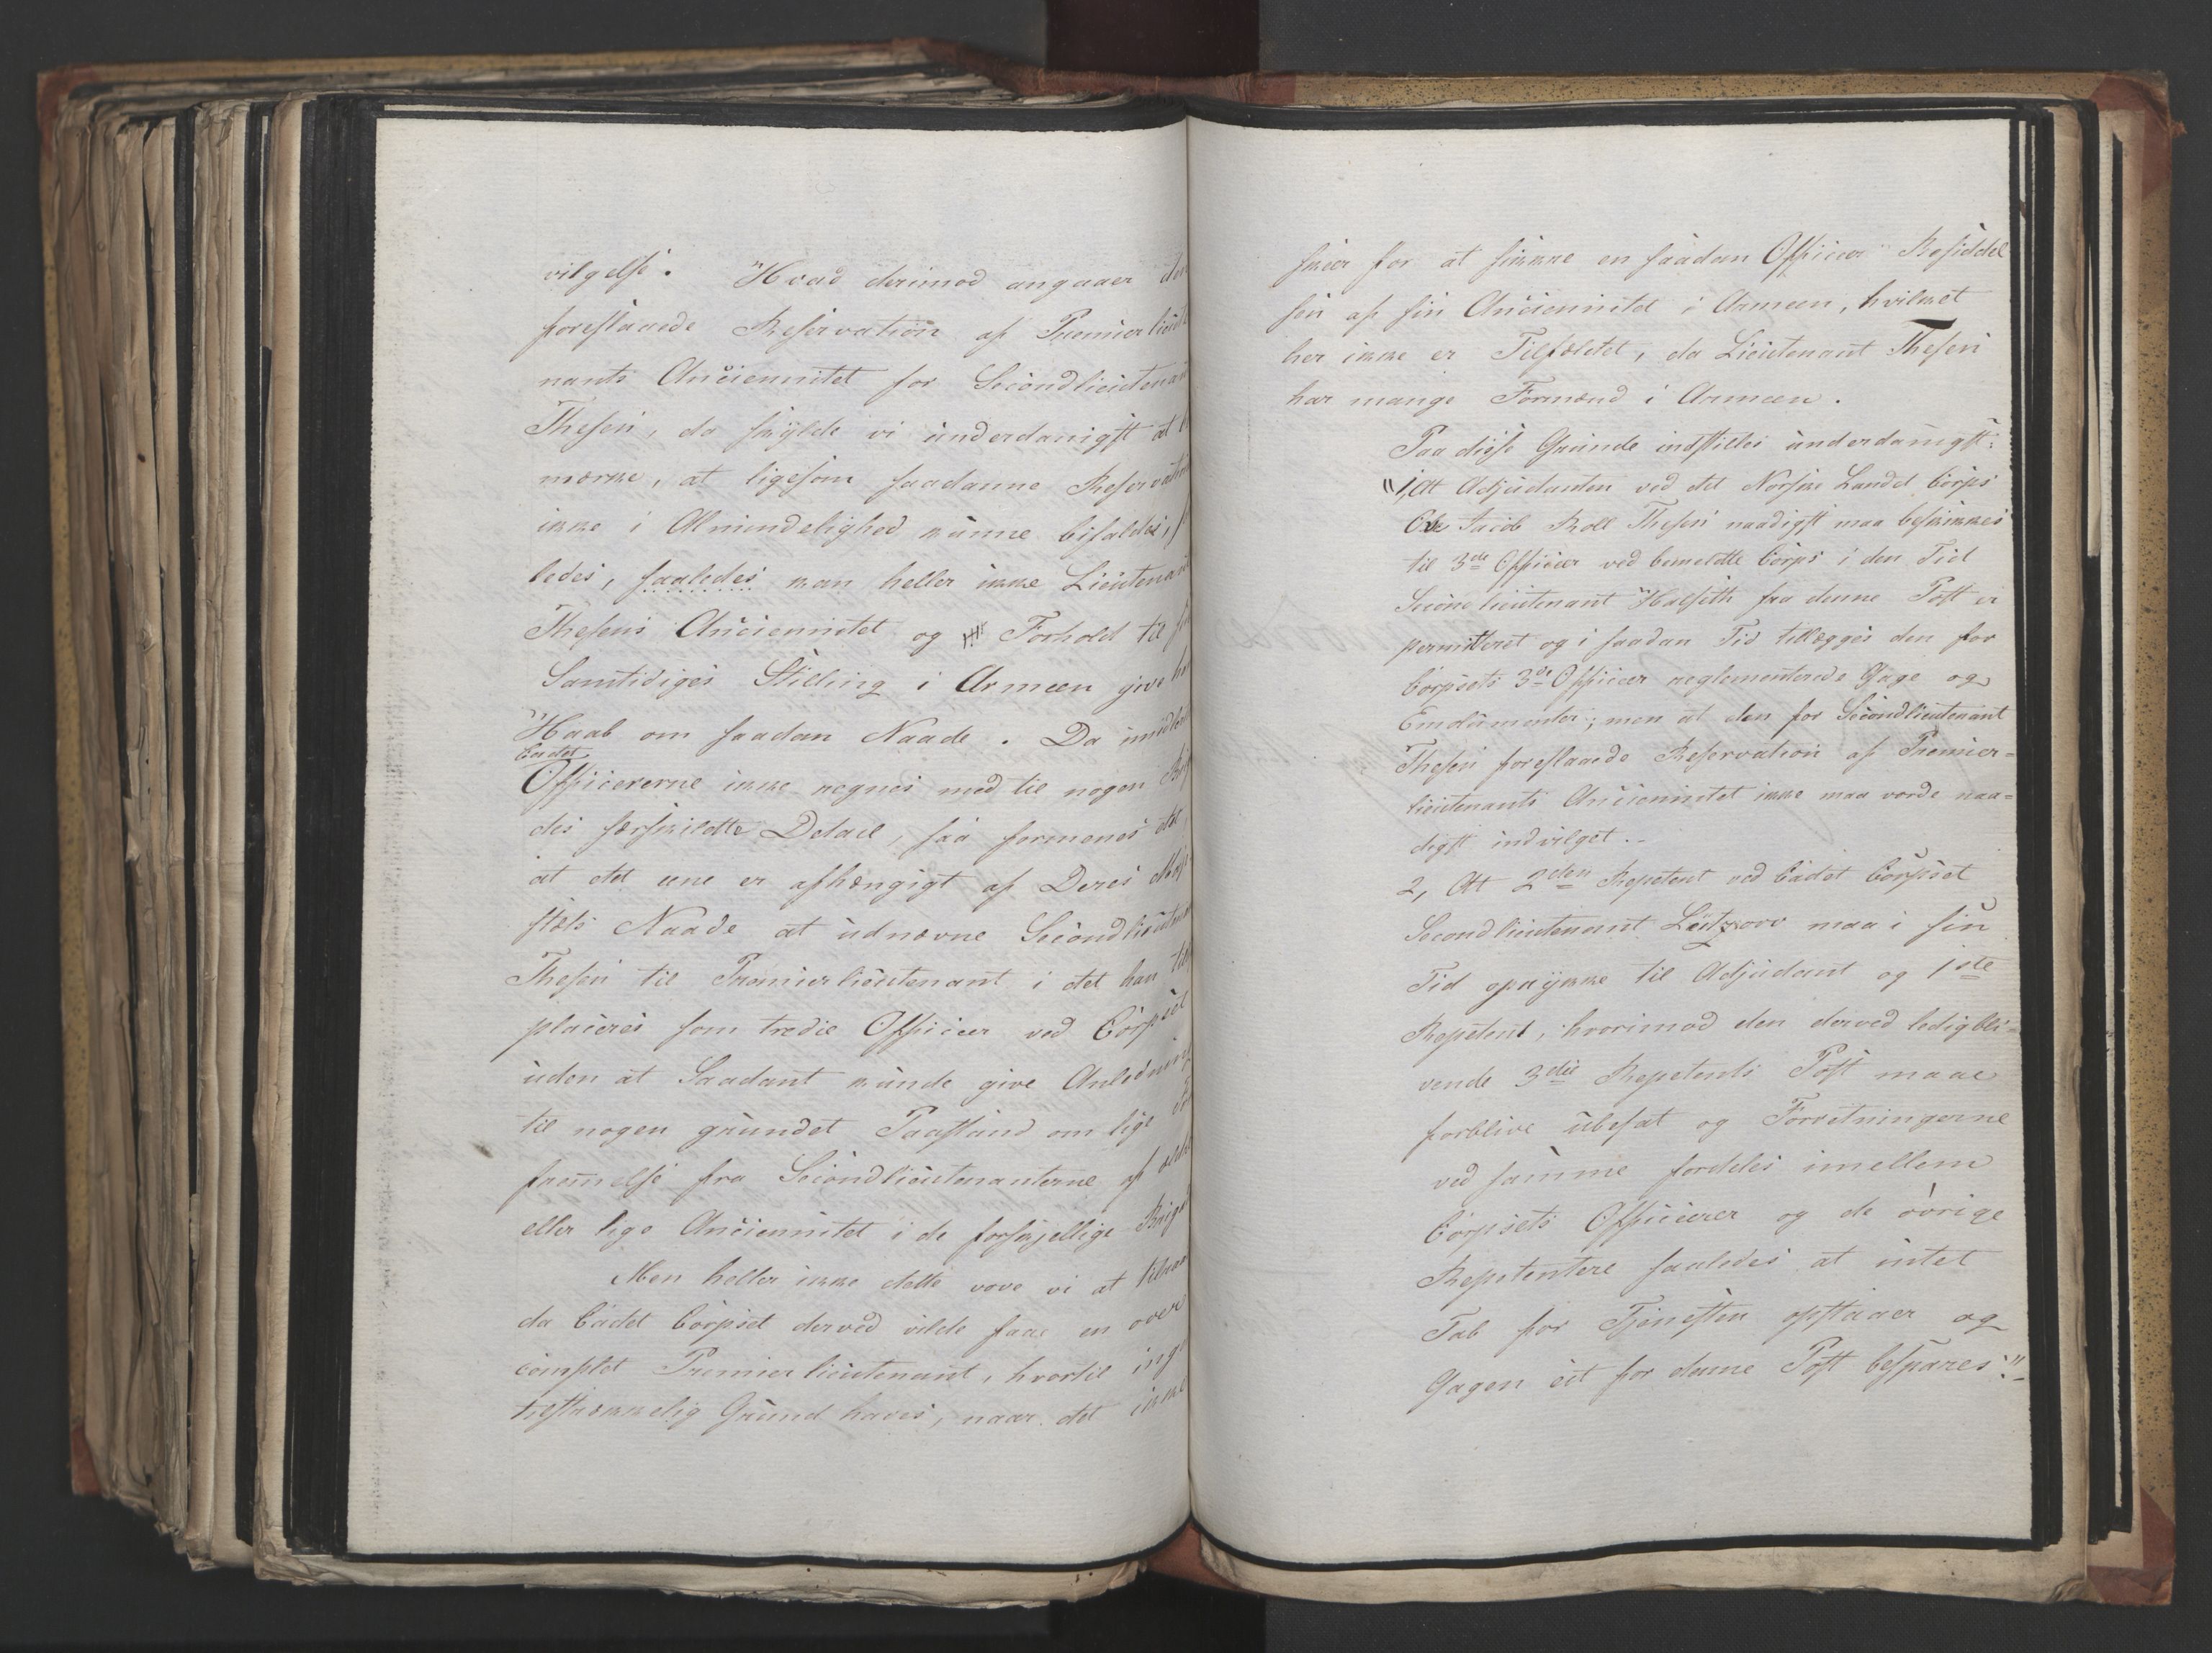 vilgelse. Hvad derimod angaaer den
foreslaaede Reservation af Premierlieute
nants Anciennitet for Secondlieutenant
Thesen, da skylde vi underdanigst at be
mærke, at ligesom saadanne Reservation
ikke i Almindelighed kunne bifaldes,
ledes, saaledes kan heller ikke Lieutenant
Thesens Anciennitet og Forhold til sin
Samtidiges Stilling i Armeen give ham
Haab om saadan Naade. Da imidler
Cadet
Officererne ikke regnes med til nogen Briga
des særskildte Detail, saa formenes det,
at det ene er afhængigt af Deres Maje
stæts Naade at udnævne Secondlieutenant
Thesen til Premierlieutenant i det han
placeres som tredie Officeer ved Corpset
uden at Saadant kunde give Anledning
til nogen grundet Paastand om lige
fremmelse fra Secondlieutenanterne af ældre
eller lige Anciennitet i de forskjellige Brigad
Men heller ikke dette vove vi at tilraa
da Cadet Corpset derved vilde faae en over
complet Premierlieutenant, hvortil ingen
tilstrækkelig Grund haves, naar det ikke
skeer for at sikkre en saadan Officeer Besiddel
sen af sin Anciennitet i Armeen, hvilket
her ikke er Tilfældet, da Lieutenant Thesen
har mange Formænd i Armeen.
Paa disse Grunde indstilles underdanigst:
"1, At Adjudanten ved det Norske Landcadet Corps
Ole Jacob Roll Thesen naadigst maa beskikkes
til 3de Officeer ved bemeldte Corps i den Tid
Secondlieutenant Halseth fra denne Post er
permitteret og i saadan Tid tillægges den for
Corpsets 3de Officeer reglementerede Gage og
Emolumenter; men at den for Secondlieutenant
Thesen foreslaaede Reservation af Premier=
lieutenants Anciennitet ikke maa vorde naa=
digst indvilget.-
2, At 2den Repetent ved Cadet Corpset
Secondlieutenant Lützow maa i sin
Tid oprykke til Adjudant og 1ste
Repetent, hvorimod den derved ledigbli=
vende 3die Repetents Post maae
forblive ubesat og Forretningerne
ved samme fordeles imellem
Corpsets Officerer og de øvrige
Repetentere saaledes at intet
Tab for Tjenesten opstaaer og
Gagen eet for denne Post bespares."-